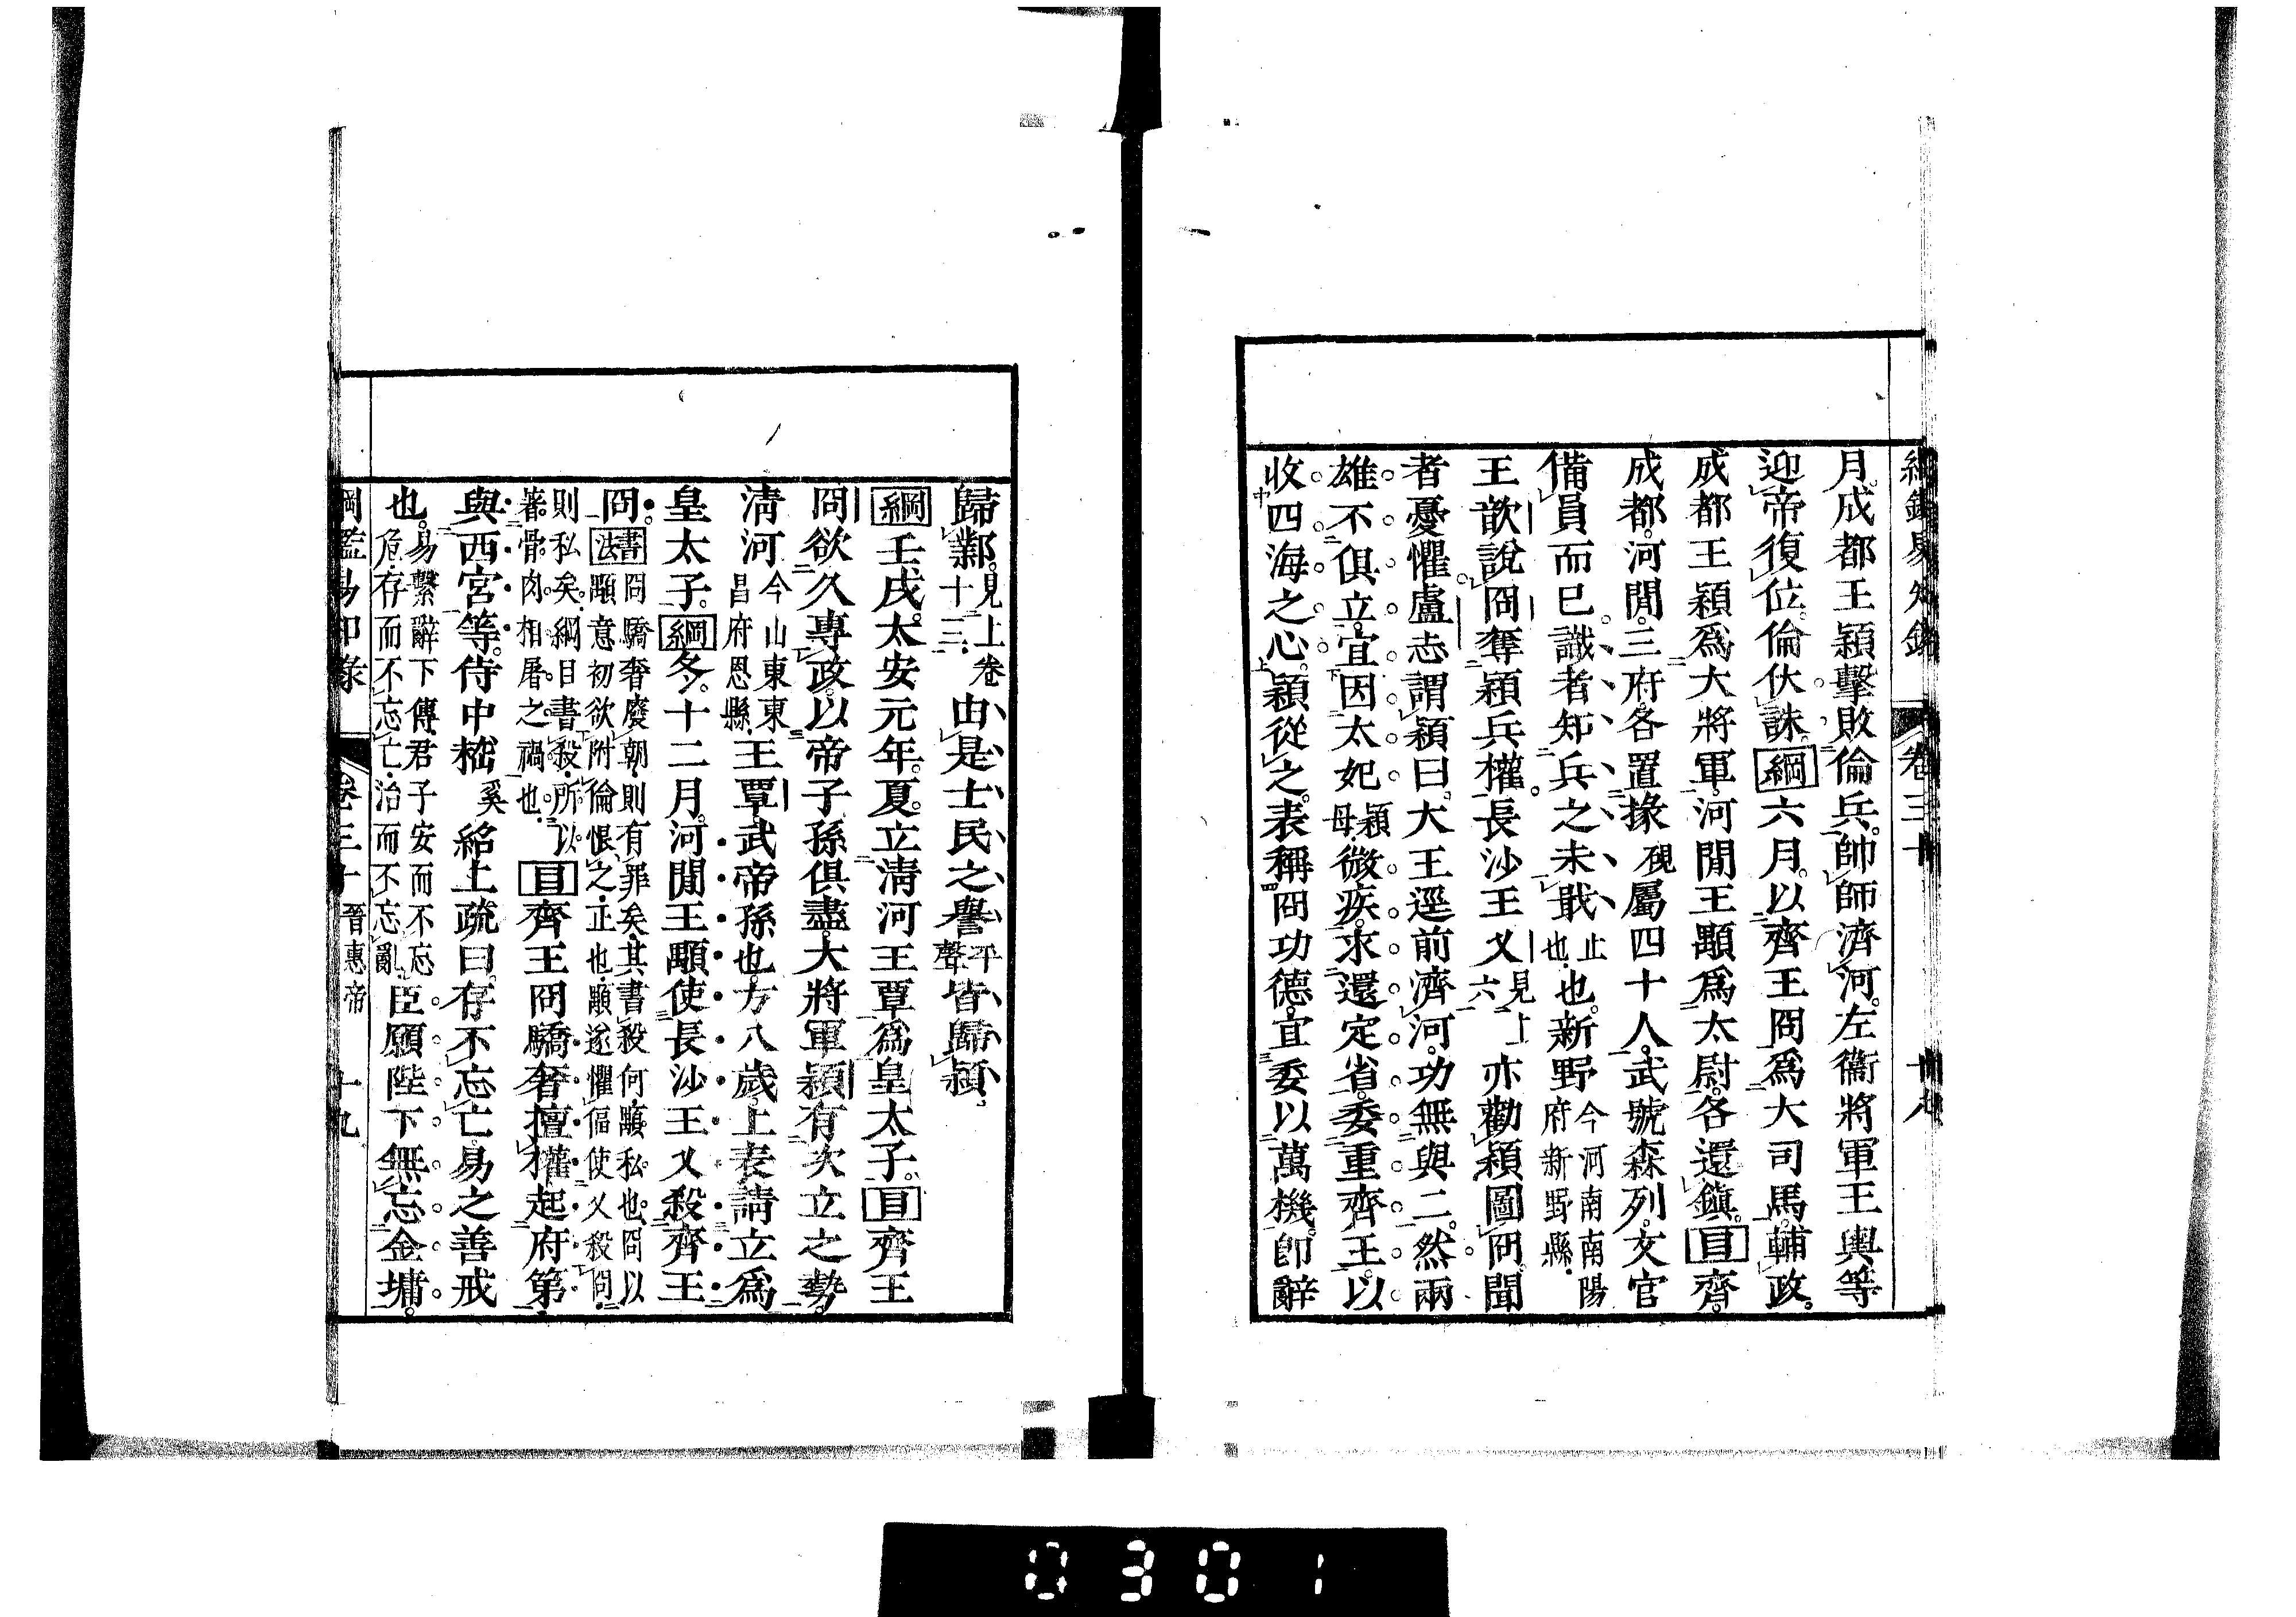 綱鑑易知錄 卷三十 十八
月。成都王穎擊敗倫兵。帥師濟河。左衞將軍王輿等
迎帝復位。倫伏誅。綱六月。以齊王冏爲大司馬。輔政。
成都王穎爲大將軍。河閒王顒爲太尉。各還鎭。目齊。
成都。河閒。三府。各置掾硯屬四十人。武號森列。文官
備員而已。識者知兵之未戢止也。也。新野今河南南陽府新野縣。
王歆說冏奪穎兵權。長沙王乂見上六亦勸穎圖冏。聞
者憂懼。盧志謂穎曰。大王逕前濟河。功無與二。然兩
雄不俱立。宜因太妃穎母。微疾。求還定省。委重齊王。以
收四海之心。穎從之。表稱冏功德。宜委以萬機。卽辭
歸鄴。見上卷十三。由是士民之譽平聲皆歸穎。
綱壬戌。太安元年。夏。立淸河王覃爲皇太子。目齊王
冏欲久專政。以帝子孫俱盡。大將軍穎有次立之勢。
淸河今山東東昌府恩縣。王覃。武帝孫也。方八歲。上表請立爲
皇太子。綱冬。十二月。河閒王顒使長沙王乂殺齊王
冏。書法冏驕奢廢朝。則有罪矣。其書殺何。顒私也。冏以顒意初欲附倫恨之。正也。顒遂懼偪使乂殺冏。
則私矣。綱目書殺。所以著骨肉相屠之禍也。目齊王冏驕奢擅權。起府第。
與西宮等。侍中嵇奚紹上疏曰。存不忘亡。易之善戒
也。易繫辭下傳。君子安而不忘危。存而不忘亡。治而不忘亂。臣願陛下無忘金墉。
綱鑑易知錄 卷三十 晉惠帝 十九
0301